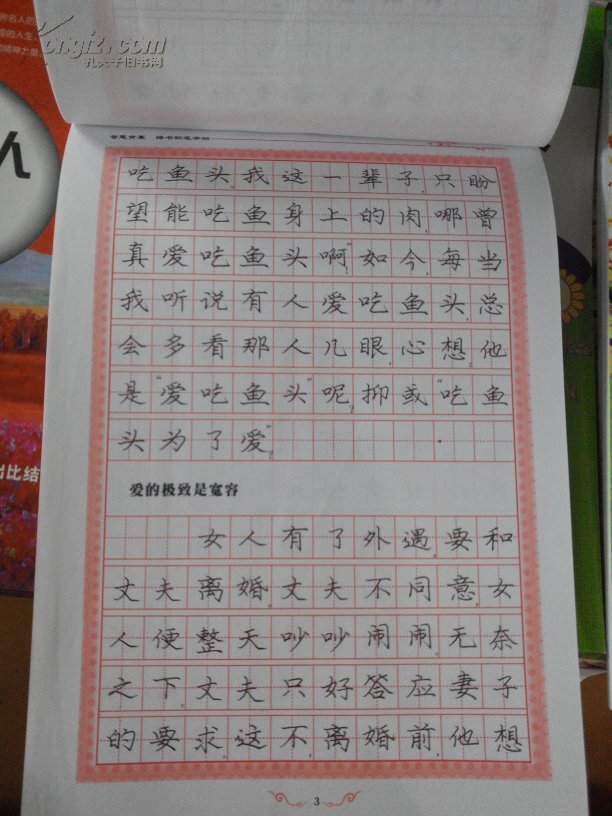 界名人的
煌的人生,
的精神力量,
Kongfz.com
孔夫子旧书网
人
出比结
智慧背囊 楷书钢笔字帖
吃鱼头,我这一辈子,只盼
望能吃鱼身上的肉,哪曾
真爱吃鱼头啊”如今,每当
我听说有人爱吃鱼头,总
会多看那人几眼,心想,他
是“爱吃鱼头”呢,抑或“吃鱼
头为了爱”?
爱的极致是宽容
女人有了外遇,要和
丈夫离婚,丈夫不同意,女
人便整天吵吵闹闹,无奈
之下,丈夫只好答应妻子
的要求,这不,离婚前,他想
3